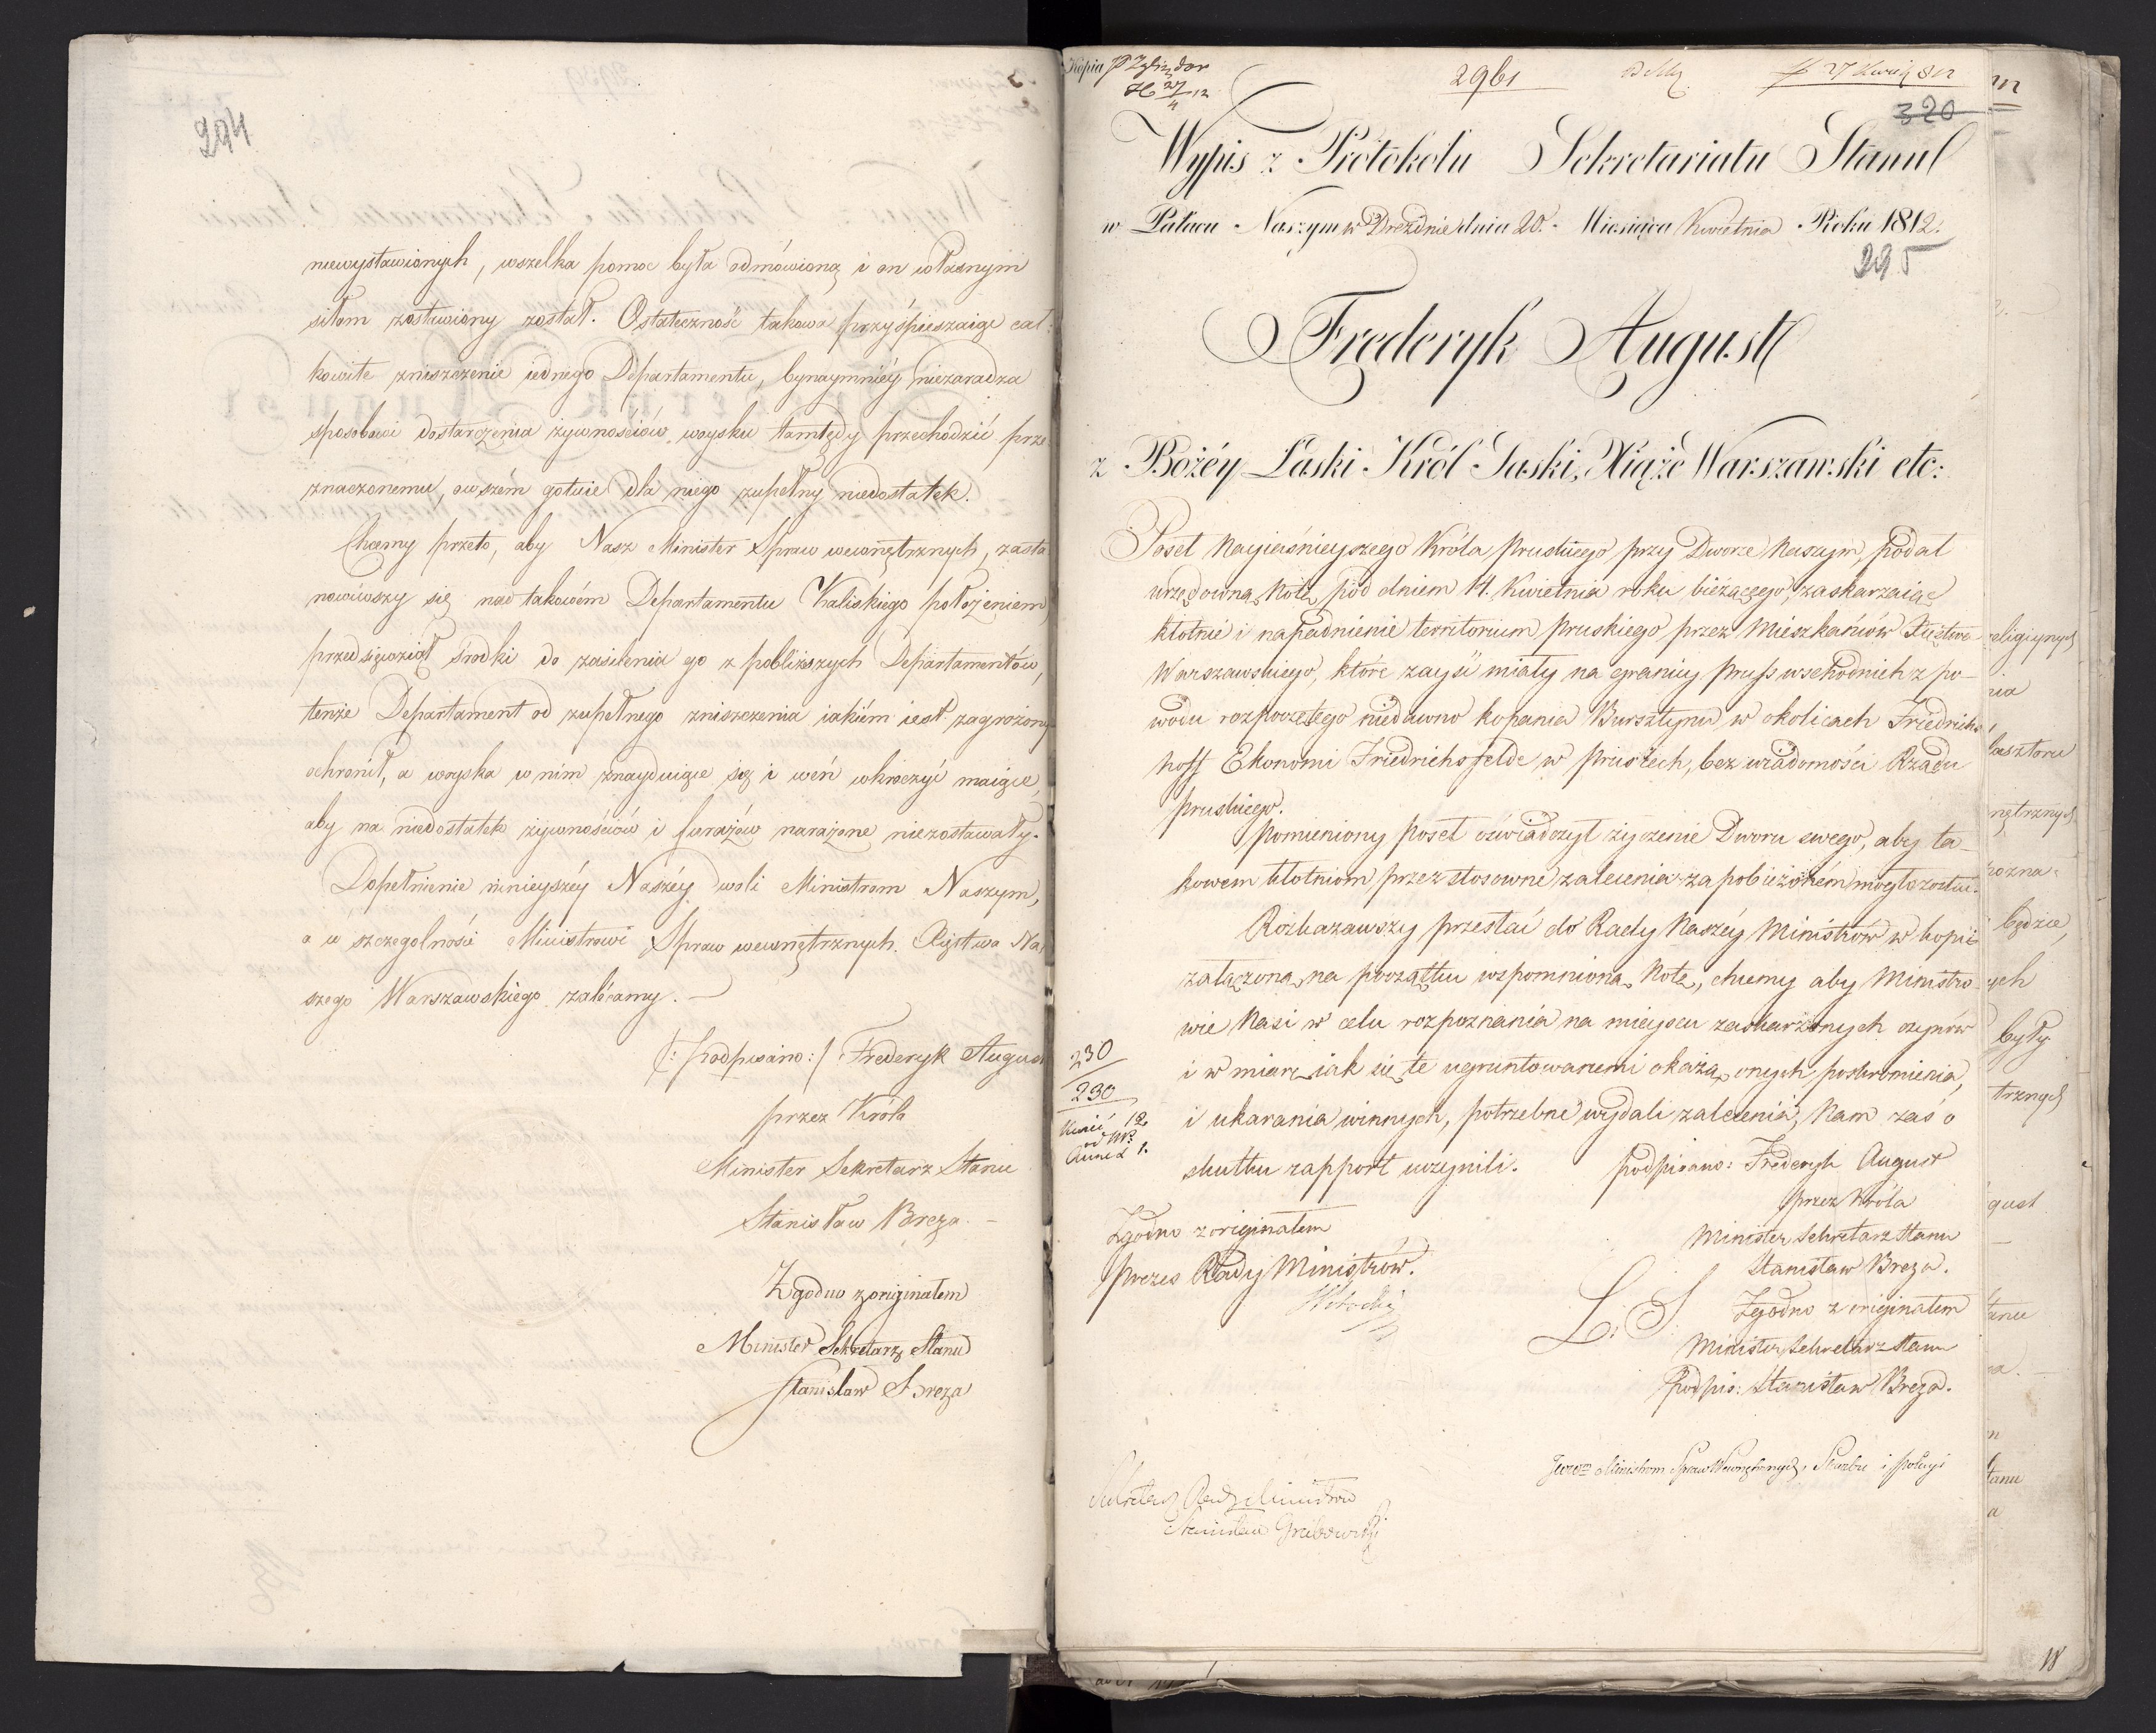 294
niewystawionych, wszelka pomoc była odmówioną i on własnym
siłom zostawiony został. Ostateczność takowa przyśpieszaiąc cał-
kowite zniszczenie iednego Departamentu, bynaymniéy niezaradza
sposobowi dostarczenia żywnościów woysku tamtędy przechodzić prze-
znaczonemu, owszém gotuie dla niego zupełny niedostatek.
Chcemy przeto, aby Nasz Minister Spraw wewnętrznych, zasta-
nowiwszy się nad takowém Departamentu Kaliskiego położeniem,
przedsięwziął środki do zasilenia go z pobliższych Departamentów,
tenże Departament od zupełnego zniszczenia iakiém iest zagrożony
ochronił, a woyska w nim znayduiące się i weń wkroczyć maiące,
aby na niedostatek żywnościów i furażów narażone niezostawały.
Dopełnienie ninieyszéy Naszéy woli Ministrom Naszym,
a w szczególności Ministrowi Spraw wewnętrznych Xięstwa Na-
szego Warszawskiego zalécamy. —
(: podpisano :) Frederyk August
przez Króla
Minister Sekretarz Stanu
Stanisław Breza. —
Zgodno z originałem
Minister Sekretarz Stanu
Stanisław Breza
Kopia
2961
27 Kwiet 812
320
Wypis z Protokołu Sekretariatu Stanu
w Pałacu Naszym w Dreźdnie dnia 20. Miesiąca Kwietnia Roku 1812.
295
Frederyk August
z Bożéy Łaski Król Saski, Xiąże Warszawski etc:
Poseł Nayiaśnieyszego Króla Pruskiego przy Dworze Naszym, podał
urzędowną Notę pod dniem 14. Kwietnia roku bieżącego, zaskarzaiąc
kłótnie i napadnienie territorium Pruskiego przez Mieszkańców Xięztwa
Warszawskiego, które zayść miały na granicy Pruss wschodnich z po-
wodu rozpoczętego niedawno kopania Bursztynu w okolicach Friedrichs-
hoff Ekonomi Friedrichsfelde w Prusiech, bez wiadomości Rządu
Pruskiego.
Pomieniony Poseł oświadczył życzenie Dworu swego, aby ta-
kowem kłótniom przez stosowne zalecenia zapobieżoném mogło zostać.
Rozkazawszy przesłać do Rady Naszéy Ministrów w kopii
załączoną na początku wspomnioną Notę, chcemy aby Ministro-
wie Nasi w celu rozpoznania na mieyscu zaskarżonych czynów
i w miarę iak się te ugruntowanemi okażą, onych poskromienia,
i ukarania winnych, potrzebne wydali zalecenia, Nam zaś o
skutku rapport uczynili.
podpisano: Frederyk August
przez Króla
Minister Sekretarz Stanu
Stanisław Breza.
L. S.
Zgodno z originałem
Minister Sekretarz Stanu
podpis: Stanisław Breza.
230
230
Zgodno z originałem
Prezes Rady Ministrów.
Sekretarz Rady Ministrów
Stanisław Grabowski
JWWM Ministrom Spraw Wewnętrznych, Skarbu i Policyi
religiynych
nia
lasztoru
nętrznych
rozna-
będzie,
ych
były
trznych
gust
tanu
za. —
n
tanu
a
18